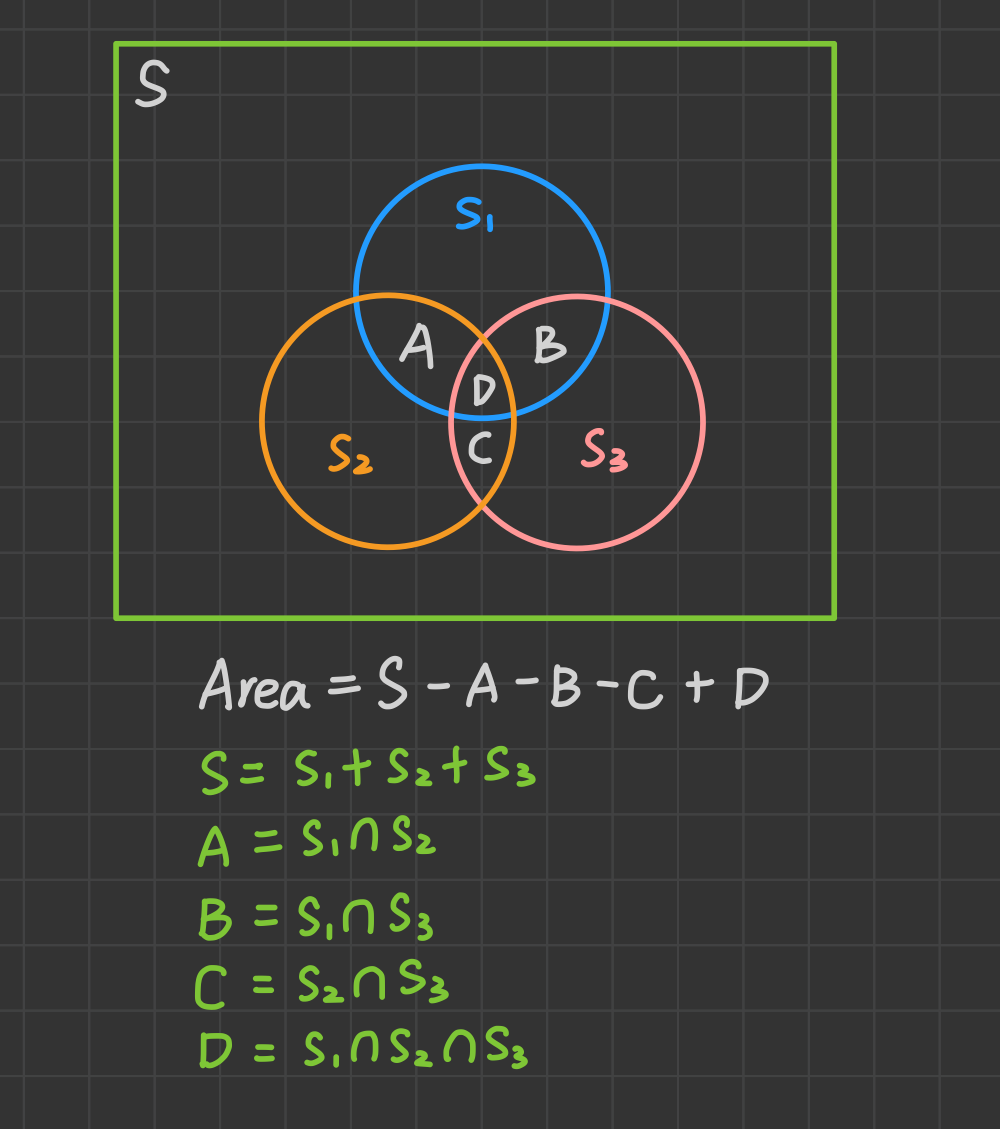 S
S₁
A B
D
S₂ C S₃
Area = S - A - B - C + D
S = S₁ + S₂ + S₃
A = S₁ ∩ S₂
B = S₁ ∩ S₃
C = S₂ ∩ S₃
D = S₁ ∩ S₂ ∩ S₃